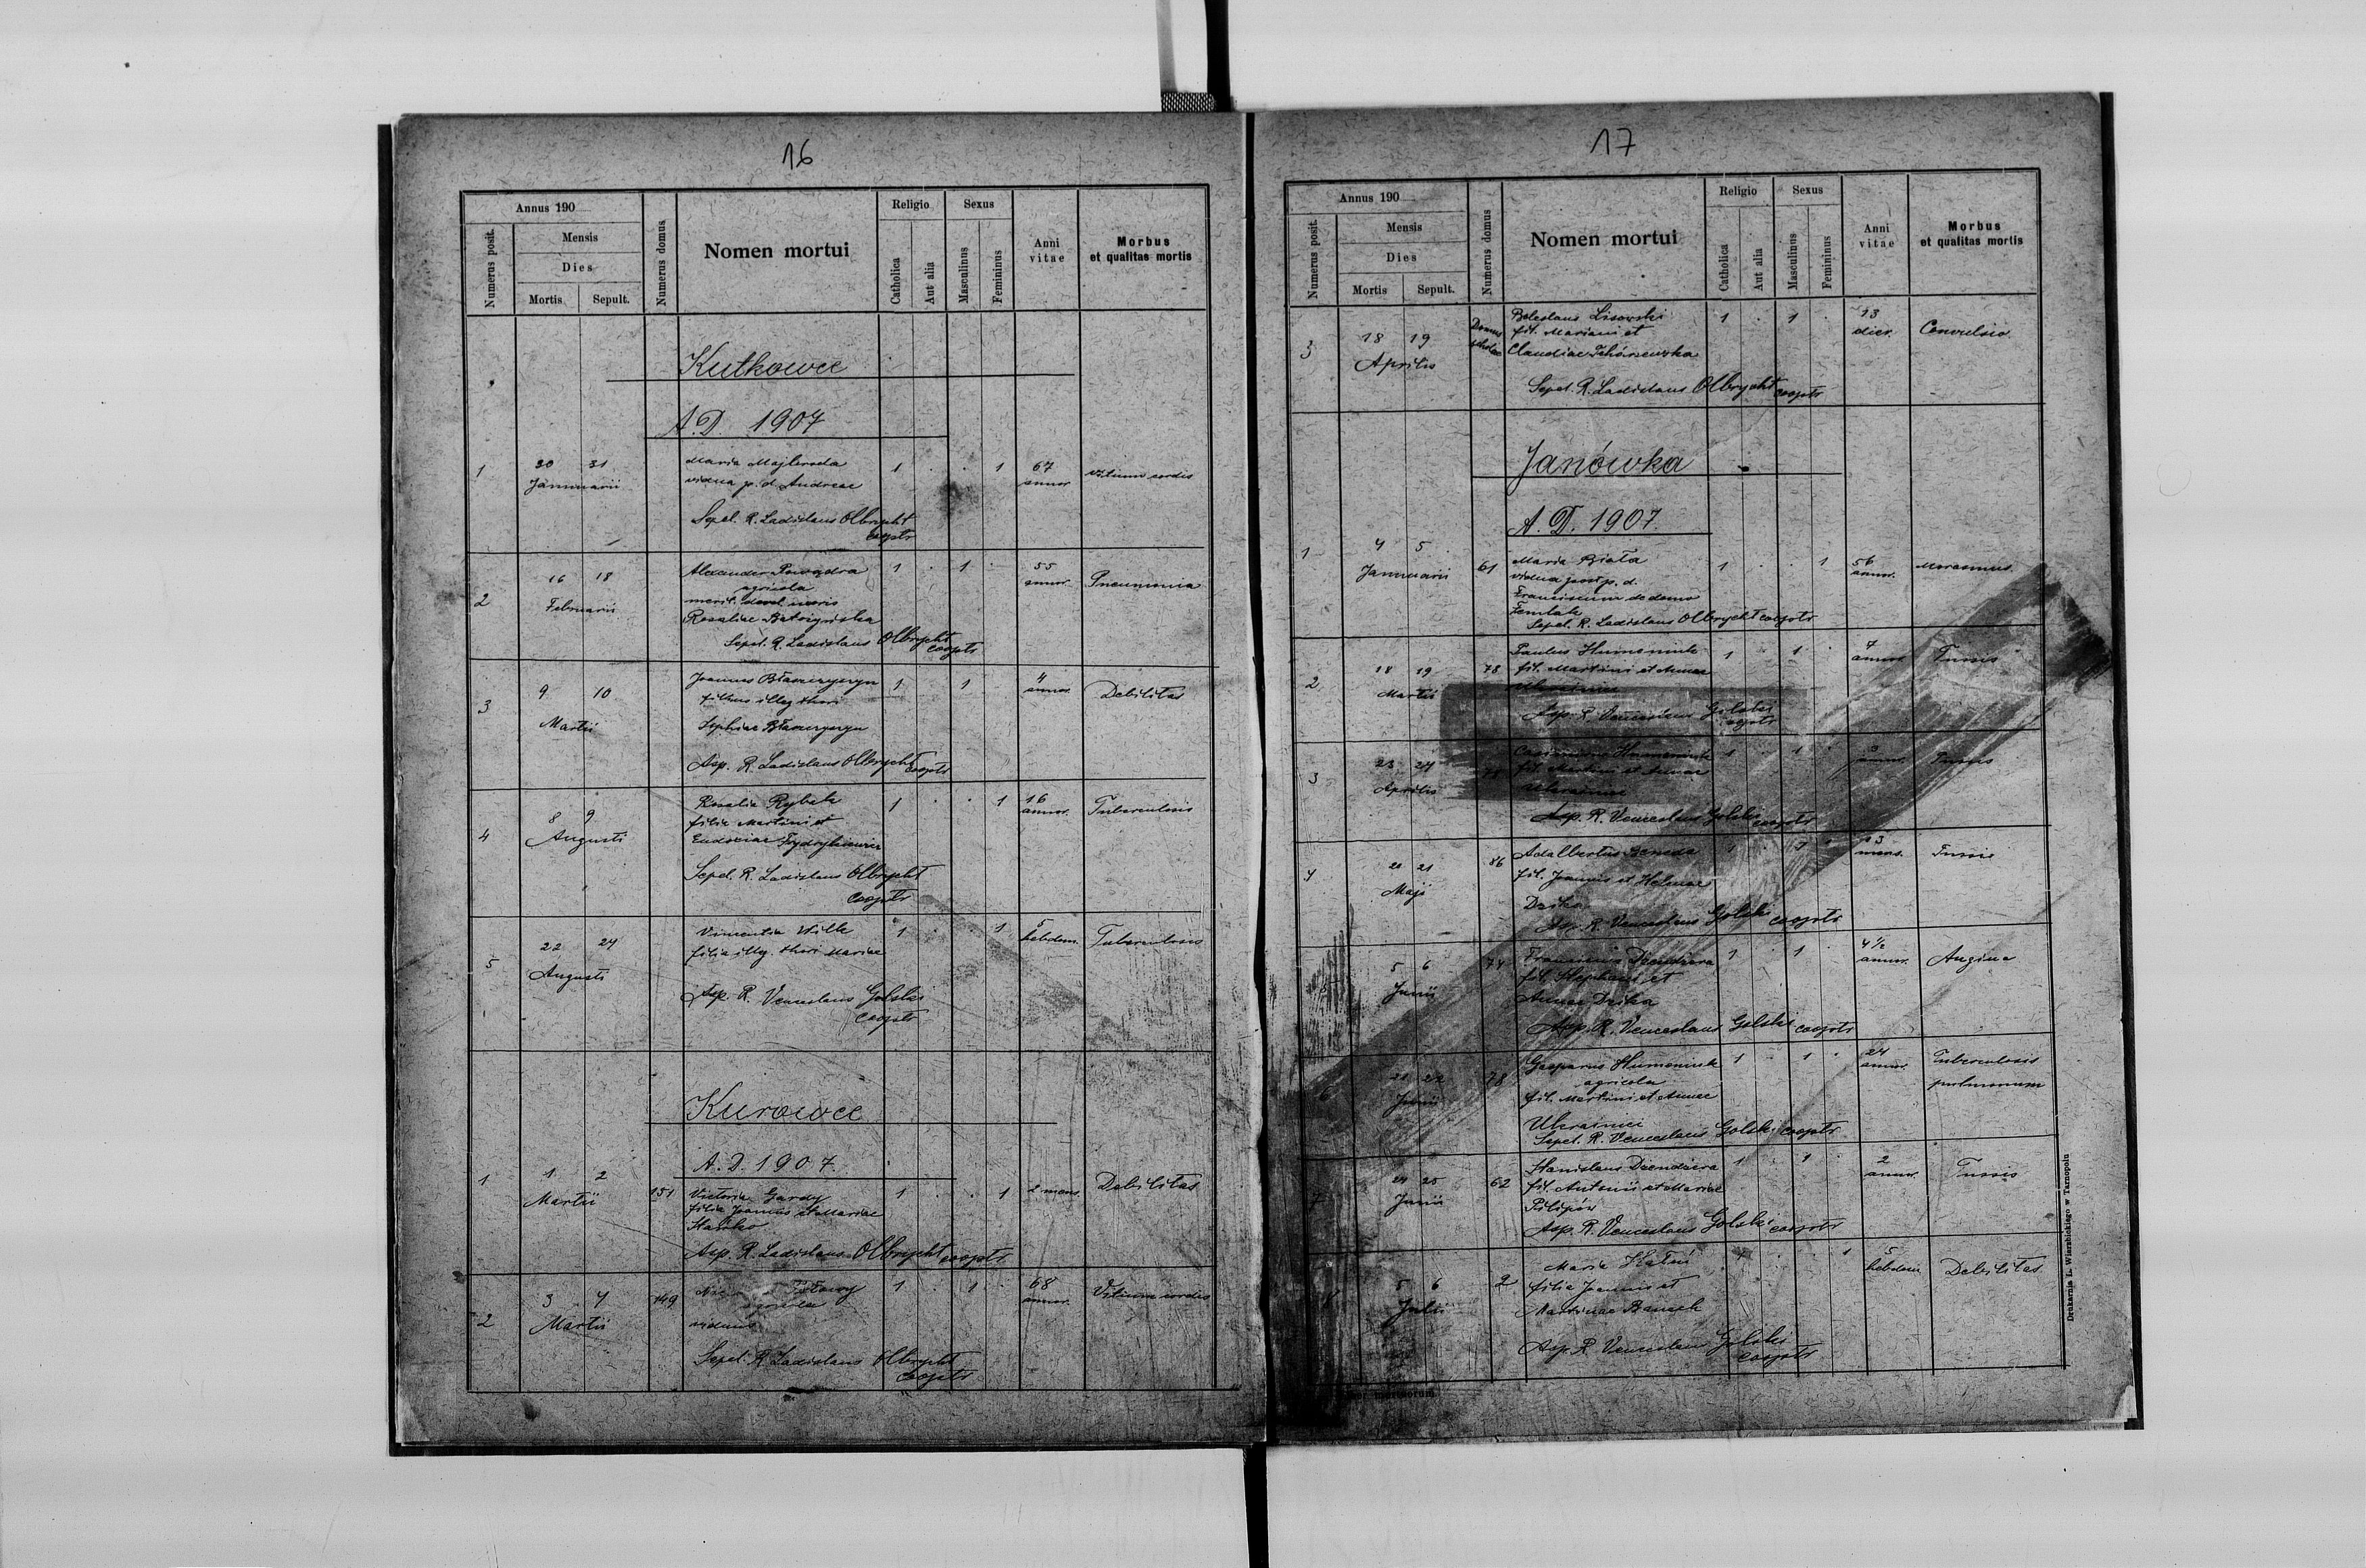 16
Annus 190
Numerus posit.
Mensis
Dies
Mortis Sepult.
Numerus domus
Nomen mortui
Religio
Catholica
Aut alia
Sexus
Masculinus
Femininus
Anni vitae
Morbus et qualitas mortis
Kutkowce
A.D. 1907
1 30 31 Januarii
Maria
vidua p. d. Andreae
1 . . 1 67 annor. vitium cordis
Sepel. R. Ladislaus Olbrycht
cooptr
2 16 18 Februarii
Alexander
agricola
Rosaliae
1 . 1 . 55 annor. Pneumonia
Sepel. R. Ladislaus Olbrycht
cooptr
3 9 10 Martii
Joannes
filius illeg. thori
Sophiae
1 1 4 annor. Debilitas
Asp. R. Ladislaus Olbrycht
cooptr
4 8 9 Augusti
Rosalia Rybak
filia Martini et
Eudociae
1 . . 1 16 annor. Tuberculosis
Sepel. R. Ladislaus Olbrycht
cooptr
5 22 24 Augusti
Vincentia Wilk
filia illeg. thori Mariae
1 . 1 5 hebdom. Tuberculosis
Asp. R. Venceslaus Golski
cooptr
Kurowce
A.D. 1907
1 1 2 Martii 151
Victoria Gardy
filia Joannis et Mariae
Hanko
1 . . 1 2 mens. Debilitas
Asp. R. Ladislaus Olbrycht cooptr
2 3 4 Martii 149
agricola
viduus
1 . 1 . 68 annor. Vitium cordis
Sepel. R. Ladislaus Olbrycht
cooptr
17
Annus 190
Numerus posit.
Mensis
Dies
Mortis Sepult.
Numerus domus
Nomen mortui
Religio
Catholica
Aut alia
Sexus
Masculinus
Femininus
Anni vitae
Morbus et qualitas mortis
3 18 19 Aprilis Domus
Boleslaus Lisowski
fil. Mariani et
Claudiae
1 . 1 . 13 dier. Convulsio
Sepel. R. Ladislaus Olbrycht cooptr
Janówka
A.D. 1907.
1 4 5 Januarii 61
Maria Biała
vidua post p. d.
Franciscum de domo
1 . . 1 56 annor. Marasmus
Sepel. R. Ladislaus Olbrycht cooptr
2 18 19 Martii 78
Paulus Humeniuk
fil. Martini et Annae
Ukrainiec
1 . 1 . 7 annor. Tussis
Asp. R. Venceslaus Golski
cooptr
3 23 24 Aprilis 78
Casimirus Humeniuk
fil. Martini et Annae
Ukrainiec
1 . 1 . 3 annor. Tussis
Asp. R. Venceslaus Golski cooptr
4 20 21 Maji 86
Adalbertus
fil. Joannis et Helenae
Dzika
1 . 1 . mens. Tussis
Asp. R. Venceslaus Golski cooptr
5 5 6 Junii 74
Franciscus Dzendzera
fil. Stephani et
Annae Dzika
1 . 1 . 4 1/2 annor. Angina
Asp. R. Venceslaus Golski cooptr
6 21 22 Junii 78
Gasparus Humeniuk
agricola
fil. Martini et Annae
Ukrainiec
1 . 1 . 24 annor. Tuberculosis pulmonum
Sepel. R. Venceslaus Golski cooptr
7 24 25 Junii 62
Stanislaus Dzendzera
fil. Antonii et Mariae
Pilipów
1 . 1 . 2 annor. Tussis
Asp. R. Venceslaus Golski cooptr
8 5 6 Julii 2
Maria
filia Joannis et
1 . . 1 5 hebdom. Debilitas
Asp. R. Venceslaus Golski
cooptr
Drukarnia L. Wierzbickiego w Tarnopolu